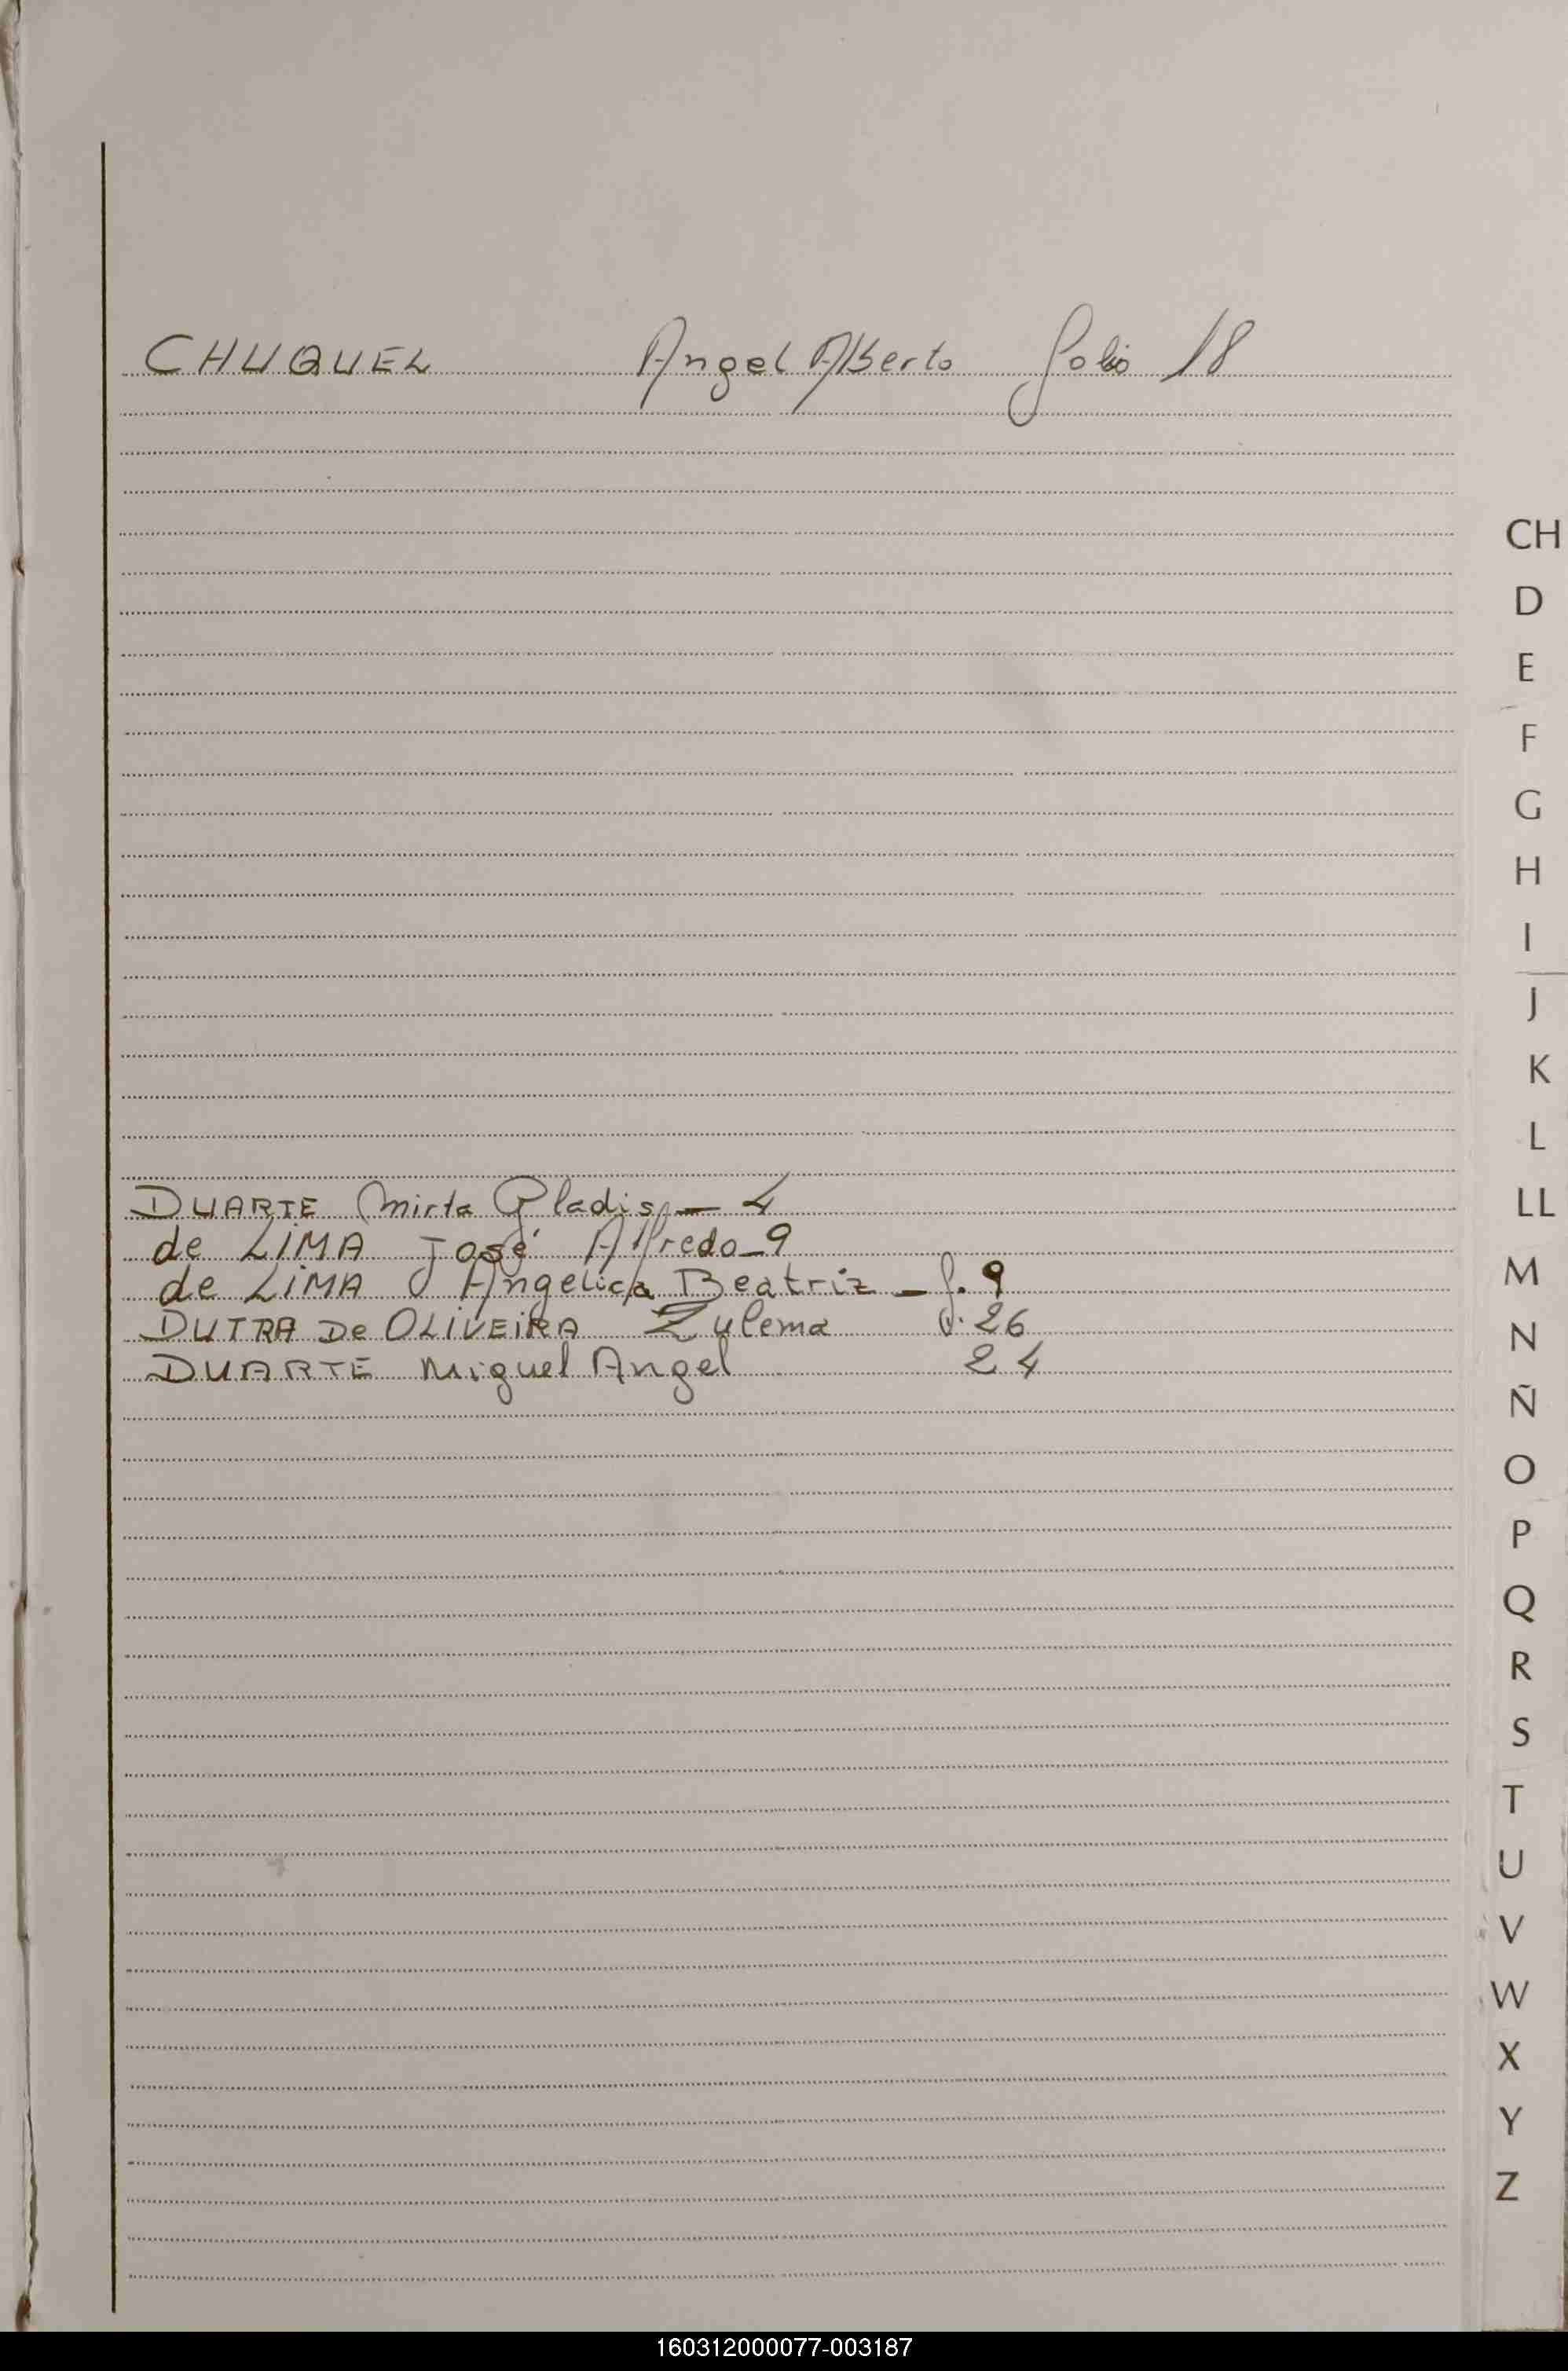 CHUQUEL Angel Alberto folio 18
CH
D
E
F
G
H
I
J
K
L
DUARTE Mirta Gladis - 4
LL
de LIMA José Alfredo - 9
de LIMA Angelica Beatriz - f. 9
M
DUTRA De OLIVEIRA Zulema f. 26
N
DUARTE Miguel Angel 24
Ñ
O
P
Q
R
S
T
U
V
W
X
Y
Z
160312000077-003187